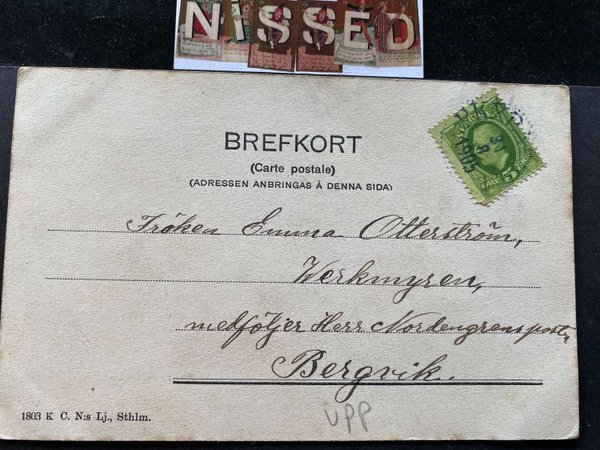 NISSED
BREFKORT
(Carte postale)
(ADRESSEN ANBRINGAS Å DENNA SIDA)
5
Fröken Emma Otterström,
Werkmyren,
medföljer Herr Nordengrens post,
Bergvik.
UPP
1803 K C. N:s Lj., Sthlm.